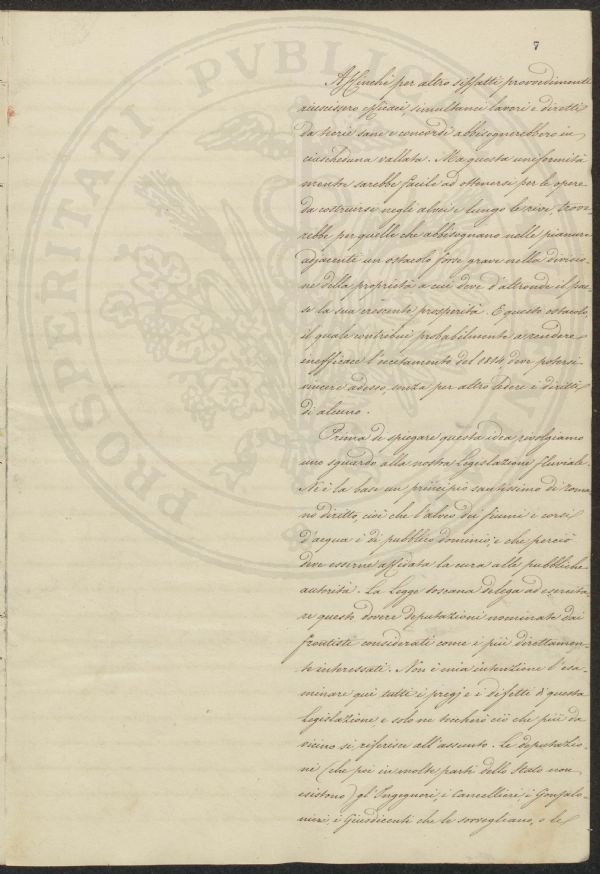 7
Affinchè per altro siffatti provvedimenti
riuscissero efficaci, simultanei lavori e diretti
da teorie sane e concordi abbisognerebbero in
ciascheduna vallata. Ma questa uniformità
mentre sarebbe facile ad ottenersi per le opere
da costruirsi negli alvei e lungo le rive, trove-
rebbe per quelle che abbisognano nelle pianure
adjacenti un ostacolo forse grave nella divisio-
ne della proprietà a cui deve d'altronde il pae-
se la sua crescente prosperità. E questo ostacolo,
il quale contribuì probabilmente a rendere
inefficace l'eccitamento del 1814, deve potersi
vincere adesso, senza per altro ledere i diritti
di alcuno.
Prima di spiegare questa idea, rivolgiamo
uno sguardo alla nostra Legislazione fluviale.
N'è la base un principio santissimo di roma-
no diritto, cioè che l'alveo dei fiumi e corsi
d'acqua è di pubblico dominio, e che perciò
deve esserne affidata la cura alle pubbliche
autorità. La Legge toscana delega ad esercita-
re questo dovere deputazioni nominate dai
frontisti considerati come i più direttamen-
te interessati. Non è mia intenzione l'esa-
minare qui tutti i pregj e i difetti di questa
Legislazione e solo ne toccherò ciò che più da
vicino si riferisce all'assunto. Le deputazio-
ni (che poi in molte parti dello Stato non
esistono) gl'Ingegneri, i Cancellieri, i Gonfalo-
nieri, i Giusdicenti che le sorvegliano, o le
PROSPERITATI PVBLICAE